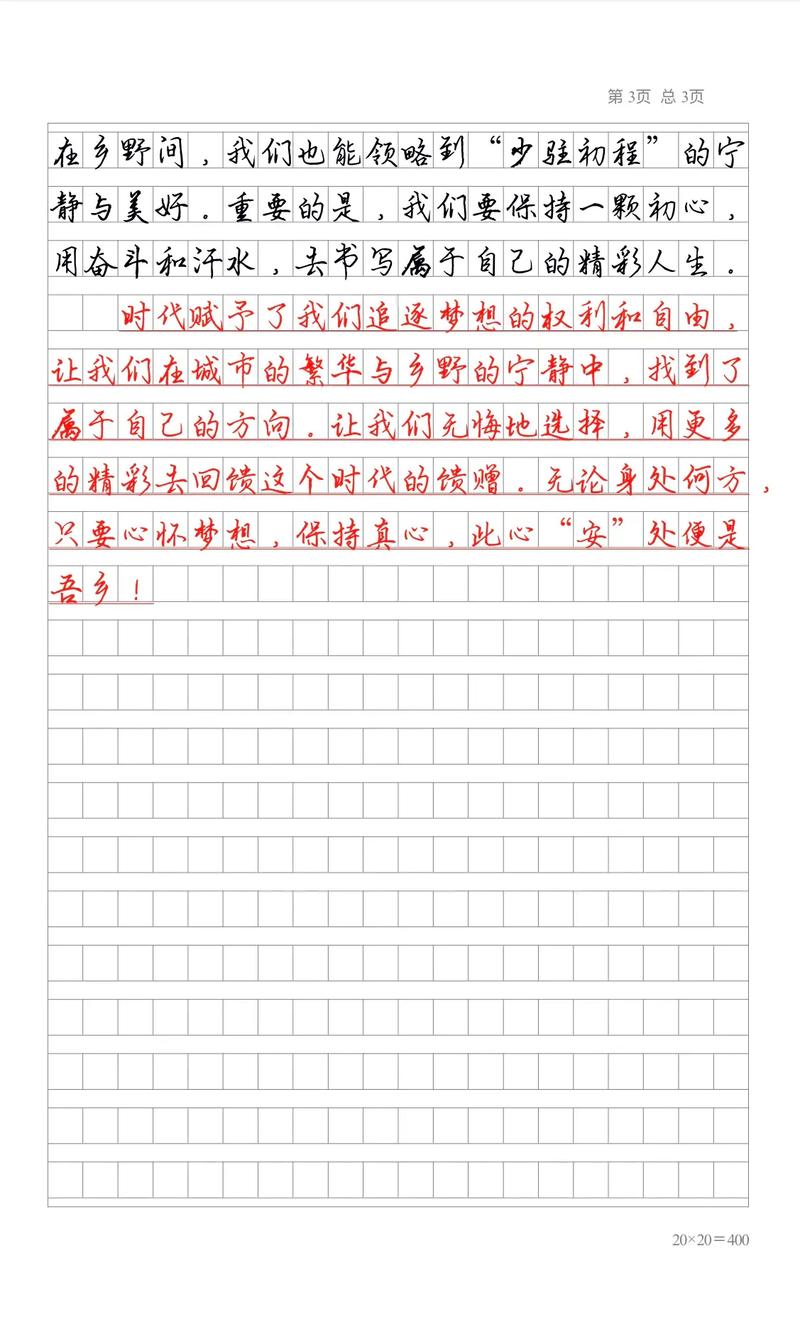 第 3页 总 3页
在乡野间，我们也能领略到“少驻初程”的宁
静与美好。重要的是，我们要保持一颗初心，
用奋斗和汗水，去书写属于自己的精彩人生。
时代赋予了我们追逐梦想的权利和自由，
让我们在城市的繁华与乡野的宁静中，找到了
属于自己的方向。让我们无悔地选择，用更多
的精彩去回馈这个时代的馈赠。无论身处何方，
只要心怀梦想，保持真心，此心“安”处便是
吾乡！
20×20＝400